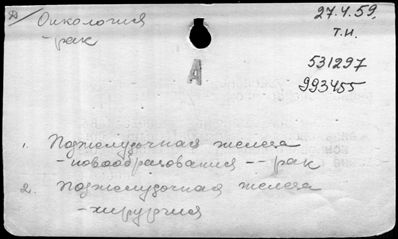 Онкология
- рак
27.4.59.
т.н.
А
531297
993455
1. Поджелудочная железа
- новообразования -- рак
2. Поджелудочная железа
- хирургия